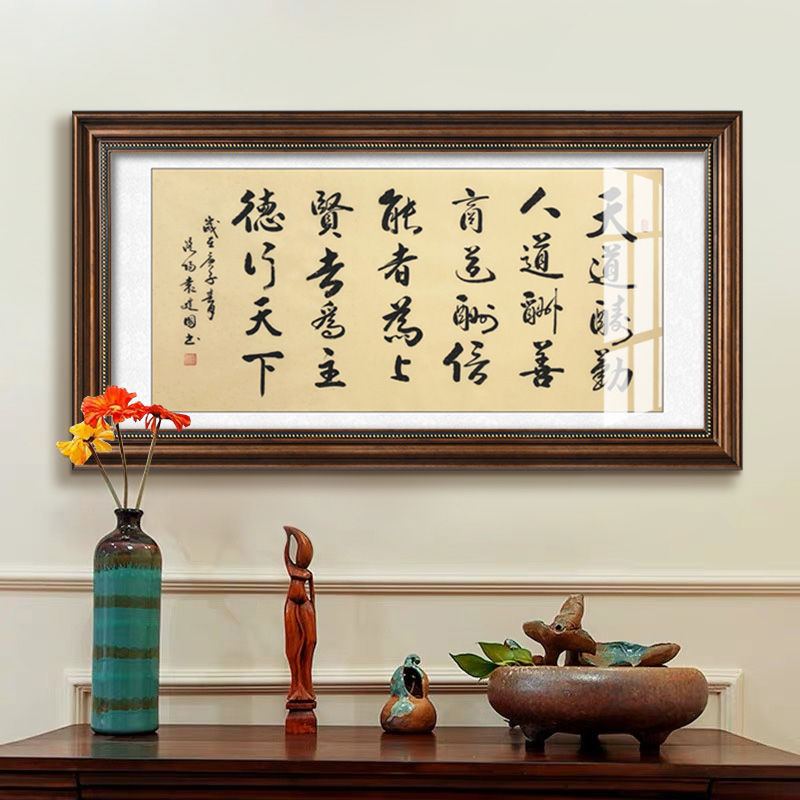 天道酬勤
人道酬善
商道酬信
能者為上
賢者為主
德行天下
歲在庚子春月
建國書